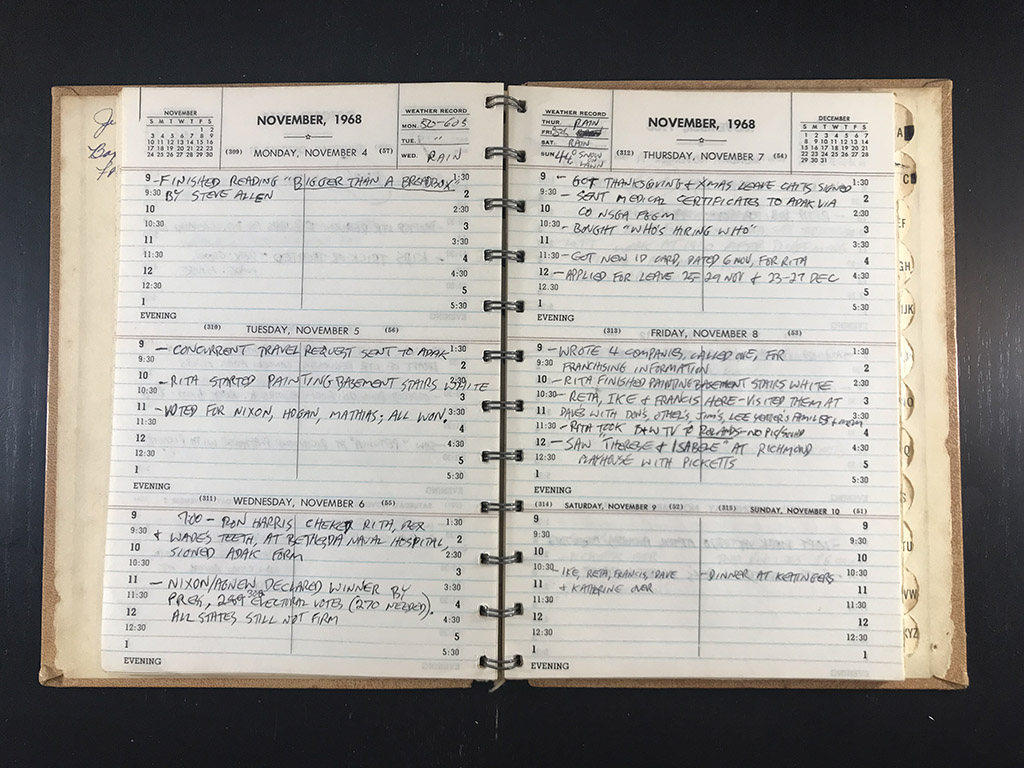 NOVEMBER
S M T W T F S
1 2
3 4 5 6 7 8 9
10 11 12 13 14 15 16
17 18 19 20 21 22 23
24 25 26 27 28 29 30
NOVEMBER, 1968
WEATHER RECORD
MON. 50-60S
TUE. "
WED. RAIN
(309) MONDAY, NOVEMBER 4 (57)
9 - FINISHED READING "BIGGER THAN A BREADBOX" 1:30
9:30 BY STEVE ALLEN 2
10 2:30
10:30 3
11 3:30
11:30 4
12 4:30
12:30 5
1 5:30
EVENING
(310) TUESDAY, NOVEMBER 5 (56)
9 - CONCURRENT TRAVEL REQUEST SENT TO ADAK 1:30
9:30 2
10 - RITA STARTED PAINTING BASEMENT STAIRS WHITE 2:30
10:30 3
11 - VOTED FOR NIXON, HOGAN, MATHIAS; ALL WON. 3:30
11:30 4
12 4:30
12:30 5
1 5:30
EVENING
(311) WEDNESDAY, NOVEMBER 6 (55)
9 700 - RON HARRIS CHEKED RITA, REX 1:30
9:30 + WADE'S TEETH, AT BETHESDA NAVAL HOSPITAL, 2
10 SIGNED ADAK FORM 2:30
10:30 3
11 - NIXON/AGNEW DECLARED WINNER BY 3:30
11:30 PRESS, ELECTORAL VOTES (270 NEEDED). 4
12 ALL STATES STILL NOT FIRM 4:30
12:30 5
1 5:30
EVENING
WEATHER RECORD
THUR. RAIN
FRI. 50S
SAT. RAIN
SUN. 44° SNOW ON LAWN
NOVEMBER, 1968
DECEMBER
S M T W T F S
1 2 3 4 5 6 7
8 9 10 11 12 13 14
15 16 17 18 19 20 21
22 23 24 25 26 27 28
29 30 31
(312) THURSDAY, NOVEMBER 7 (54)
9 - GOT THANKSGIVING & XMAS LEAVE CHITS SIGNED 1:30
9:30 - SENT MEDICAL CERTIFICATES TO ADAK VIA 2
10 CO NSGA FGGM 2:30
10:30 - BOUGHT "WHO'S HIRING WHO" 3
11 3:30
11:30 - GOT NEW ID CARD, DATED 6 NOV, FOR RITA 4
12 - APPLIED FOR LEAVE 25-29 NOV & 23-27 DEC 4:30
12:30 5
1 5:30
EVENING
(313) FRIDAY, NOVEMBER 8 (53)
9 - WROTE 4 COMPANIES, CALLED ONE, FOR 1:30
9:30 FRANCHISING INFORMATION 2
10 - RITA FINISHED PAINTING BASEMENT STAIRS WHITE 2:30
10:30 - RETA, IKE & FRANCIS HERE - VISITED THEM AT 3
11 DAVES WITH DON'S, OTHEL'S, JIM'S, LEE 3:30
11:30 - RITA TOOK B&W TV TO ROLANDS - NO PIC/SOUND 4
12 - SAW "THERESE & ISABELE" AT RICHMOND 4:30
12:30 PLAYHOUSE WITH PICKETTS 5
1 5:30
EVENING
(314) SATURDAY, NOVEMBER 9 (52) (315) SUNDAY, NOVEMBER 10 (51)
9 9
9:30 9:30
10 10
10:30 - IKE, RETA, FRANCIS, DAVE - DINNER AT KETTINGERS 10:30
11 & KATHERINE OVER 11
11:30 11:30
12 12
12:30 12:30
1 1
EVENING
A
C
EF
GH
IJK
NO
Q
S
TU
VW
XYZ